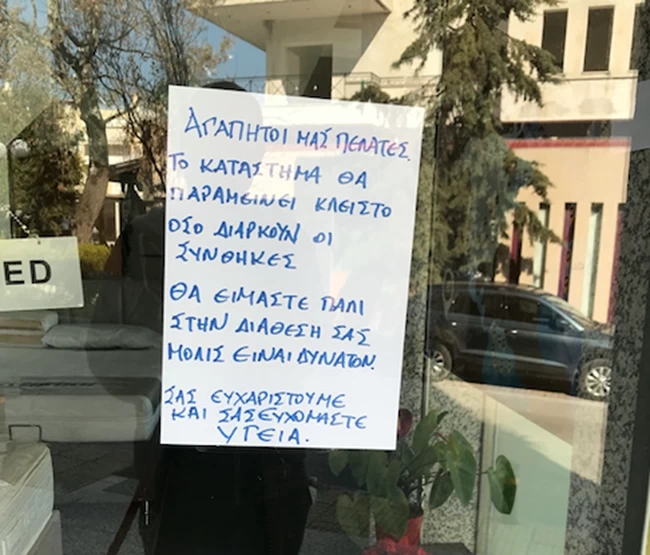 ΑΓΑΠΗΤΟΙ ΜΑΣ ΠΕΛΑΤΕΣ.
ΤΟ ΚΑΤΑΣΤΗΜΑ ΘΑ
ΠΑΡΑΜΕΙΝΕΙ ΚΛΕΙΣΤΟ
ΟΣΟ ΔΙΑΡΚΟΥΝ ΟΙ
ΣΥΝΘΗΚΕΣ
ΘΑ ΕΙΜΑΣΤΕ ΠΑΛΙ
ΣΤΗΝ ΔΙΑΘΕΣΗ ΣΑΣ
ΜΟΛΙΣ ΕΙΝΑΙ ΔΥΝΑΤΟΝ.
ΣΑΣ ΕΥΧΑΡΙΣΤΟΥΜΕ
ΚΑΙ ΣΑΣ ΕΥΧΟΜΑΣΤΕ
ΥΓΕΙΑ.
ED